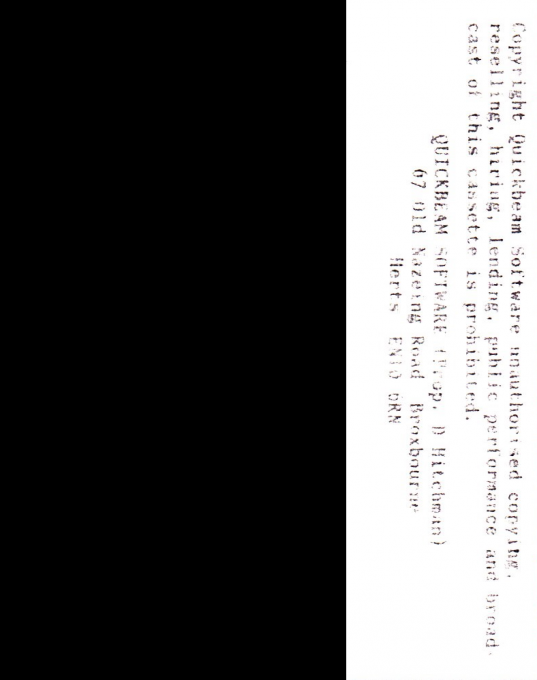 Copyright Quickbeam Software unauthorised copying,
reselling, hiring, lending, public performance and broad-
cast of this cassette is prohibited.
QUICKBEAM SOFTWARE (Prop. D Hitchman)
67 Old Nazeing Road Broxbourne
Herts EN10 6RN